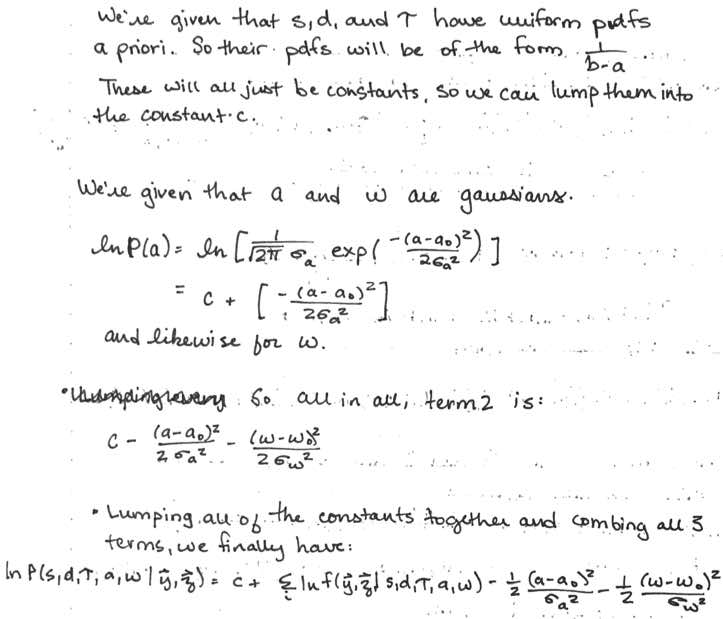 We're given that s, d, and τ have uniform pdfs
a priori. So their pdfs will be of the form 1/(b-a)
These will all just be constants, so we can lump them into
the constant c.
We're given that a and ω are gaussians.
ln P(a) = ln [ 1/(√2π σ_a) exp( -(a-a₀)²/2σ_a² ) ]
= c + [ -(a-a₀)²/2σ_a² ]
and likewise for ω.
• So all in all, term 2 is:
c - (a-a₀)²/2σ_a² - (ω-ω₀)²/2σ_ω²
• Lumping all of the constants together and combing all 3
terms, we finally have:
ln P(s,d,τ,a,ω | y⃗,z⃗) = c + Σ_i ln f(y⃗,z⃗ | s,d,τ,a,ω) - 1/2 (a-a₀)²/σ_a² - 1/2 (ω-ω₀)²/σ_ω²